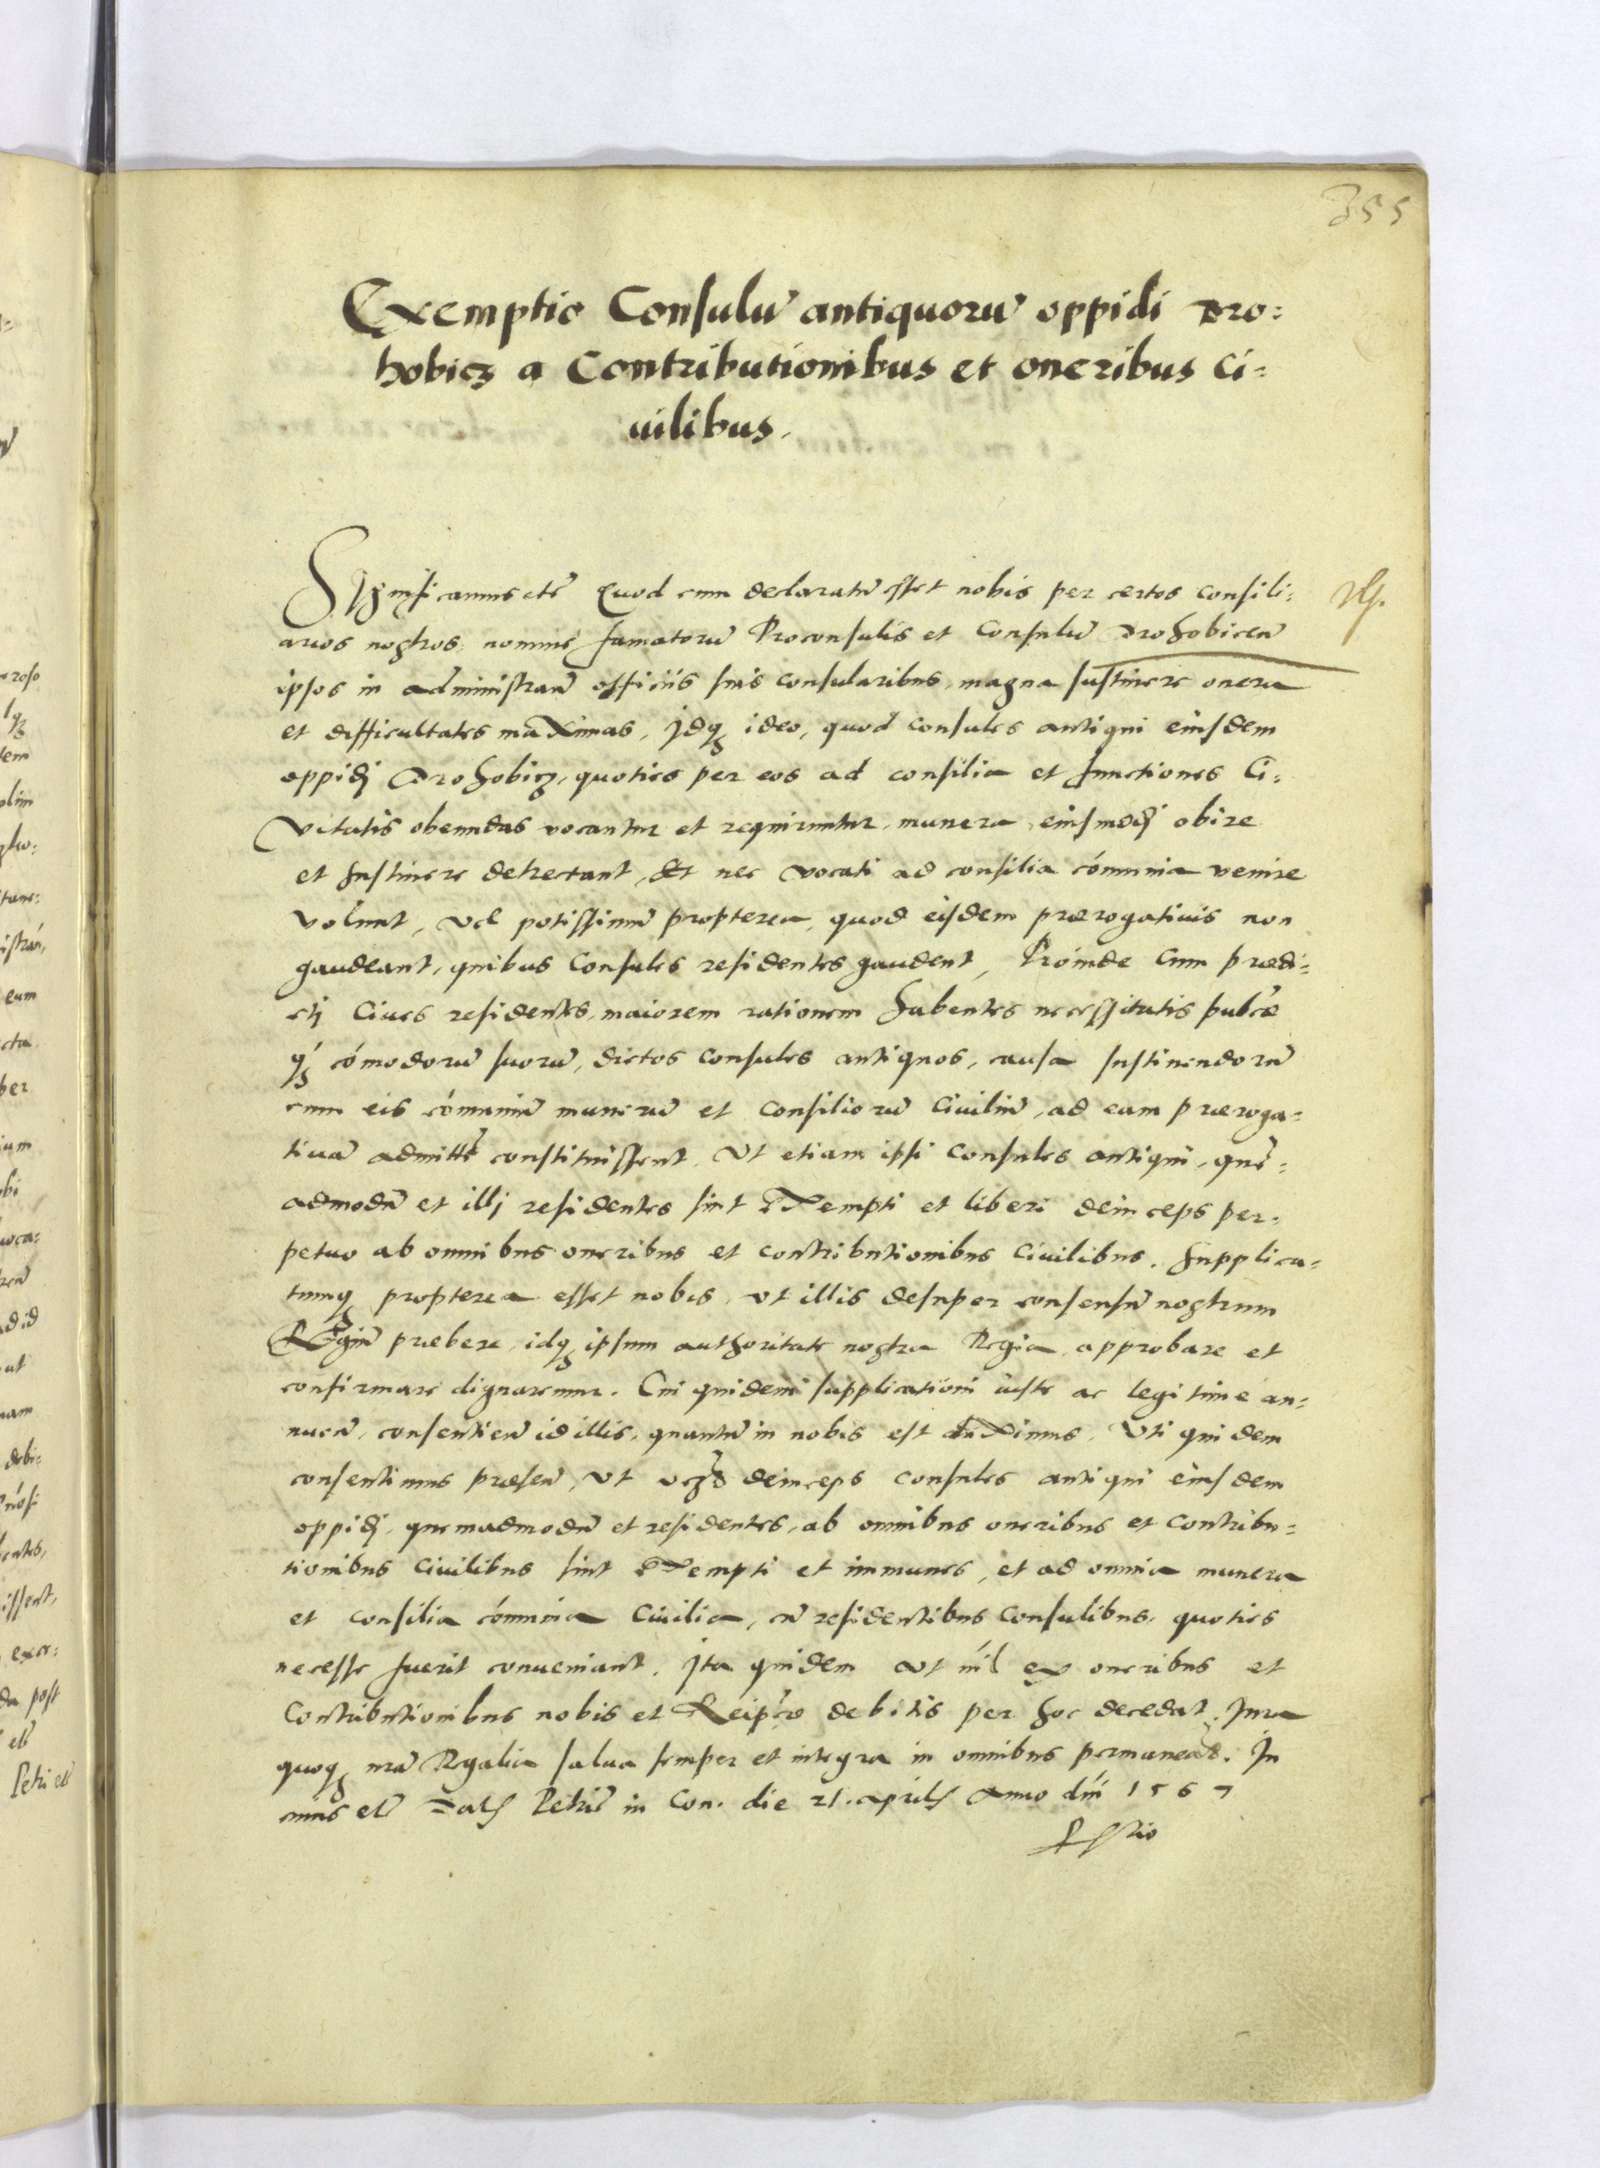 355
Exemptio Consulū antiquorū oppidi Dro:
hobicz a Contributionibus et oneribus Ci:
uilibus.
Significamus etc̃ Quod cum declaratū esset nobis per certos consili:
arios nostros, nomine famatorū Proconsulis et Consulū Drohobicen̄
ipsos in administran̄ officiis suis consularibus, magna sustinere onera
et difficultates maximas, Jdq̨ ideo, quod consules antiqui eiusdem
oppidj Drohobicz, quoties per eos ad consilia et functiones Ci:
vitatis obeundas vocantur et requiruntur, munera eiusmodj obire
et sustinere detrectant, Et nec vocati ad consilia cómunia venire
volunt, vel potissimū propterea, quod eisdem prærogatiuis non
gaudeant, quibus Consules residentes gaudent, Proinde Cum prædi:
ctj Ciues residentes, maiorem rationem habentes necessitatis pub̄cæ
q̨́ cómodorū suorū, dictos Consules antiquos, causa sustinendorū
cum eis cómuniū munerū et consiliorū Ciuiliū, ad eam præroga:
tiuā admitte constituissent, Vt etiam ipsi Consules antiqui, quē:
admodū et illj residentes sint Exempti et liberi deinceps per:
petuo ab omnibus oneribus et contributionibus Ciuilibus. Supplica:
tumq̨ propterea esset nobis, vt illis desuper consensū nostrum
Regiū præbere, idq̨ ipsum authoritate nostra Regia approbare et
confirmare dignaremur. Cui quidem supplicationi iuste ac legitime an:
nuen̄, consentien̄ id illis, quantū in nobis est duximus, Vti quidem
consentimus præsen̄, vt deinceps consules antiqui eiusdem
oppidj, quemadmodū et residentes, ab omnibus oneribus et contribu:
tionibus Ciuilibus sint Exempti et immunes, et ad omnia munera
et consilia cómunia Ciuilia, cū residentibus Consulibus, quoties
necesse fuerit conueniant. Jta quidem vt níl ex oneribus et
Contributionibus nobis et Reip̄cæ debitis per hoc decedat. Jura
quoq̨ nr̄a Regalia salua semper et integra in omnibus permaneāt. In
cuius etc̃ Dat Petric̄ in Con. die 21. aprilis Anno dńi 1567